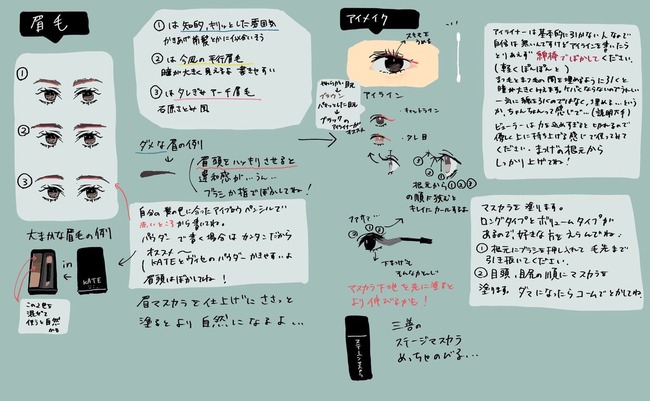 眉毛
①
②
③
大まかな眉毛の例
in
KATE
この2色を
混ぜて
使うと自然
かも
①は知的,キリッとした雰囲気
かきあげ前髪とかににあいそう
②は今風の平行眉毛
瞳が大きく見えるよ 書きやすい
③はタレぎみアーチ眉毛
石原さとみ風
ダメな眉の例
眉頭をハッキリさせると
違和感が…うん…
ブラシか指でぼかしてね!
自分の髪の色に合ったアイブロウペンシルで
赤いところから書いてね。
パウダーで書く場合はカンタンだから
オススメ〜
(KATEとヴィセのパウダーかきやすいよ
眉頭はぼかしてね!
眉マスカラを仕上げにささっと
塗るとより自然になるよよ...
アイメイク
すきまを
うめる
やわらかい目元
ブラウン
パキッとした目元
ブラックの
アイライナーが
オススメ
アイライン
キャットライン
タレ目
① ② ③
根元から①②③
の順に挟むと
キレイにカールするよ
マスカラ
下まつげも
そんなかんじ
マスカラ下地を先に塗ると
より伸びるかも!
三善の
ステージマスカラ
めっちゃのびる...
アイライナーは基本的に引かない人なので
自信は無いんですけどアイラインを書いたら
とりあえず綿棒でぼかしてください。
(軽くぽんぽんと)
まつ毛とまつ毛の間を埋めるように引くと
瞳が大きく見えます。ケバくならないのでうれしい
一気に線を引くのではなく、埋める...という
か、ちょんちょんって感じで...(説明下手)
ビューラーは力を込めすぎると切れるので
優しく上に持ち上げる感じで使ってみて
ください。まつげの根元から
しっかり上げてね!
マスカラを塗ります。
ロングタイプとボリュームタイプが
あるので好きな方をえらんでね。
①根元にブラシを押し入れて毛先まで
引き抜いてください。
②目頭、目尻の順にマスカラを
塗ります。ダマになったらコームでとかしてね。